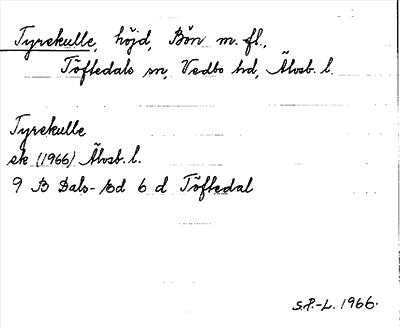 Tyrekulle, höjd, Bön m.fl.,
Töftedals sn, Vedbo hd, Älvsb. l.
Tyrekulle
ek (1966) Älvsb. l.
9 B Dals-Ed 6 d Töftedal
S.P.-L. 1966.